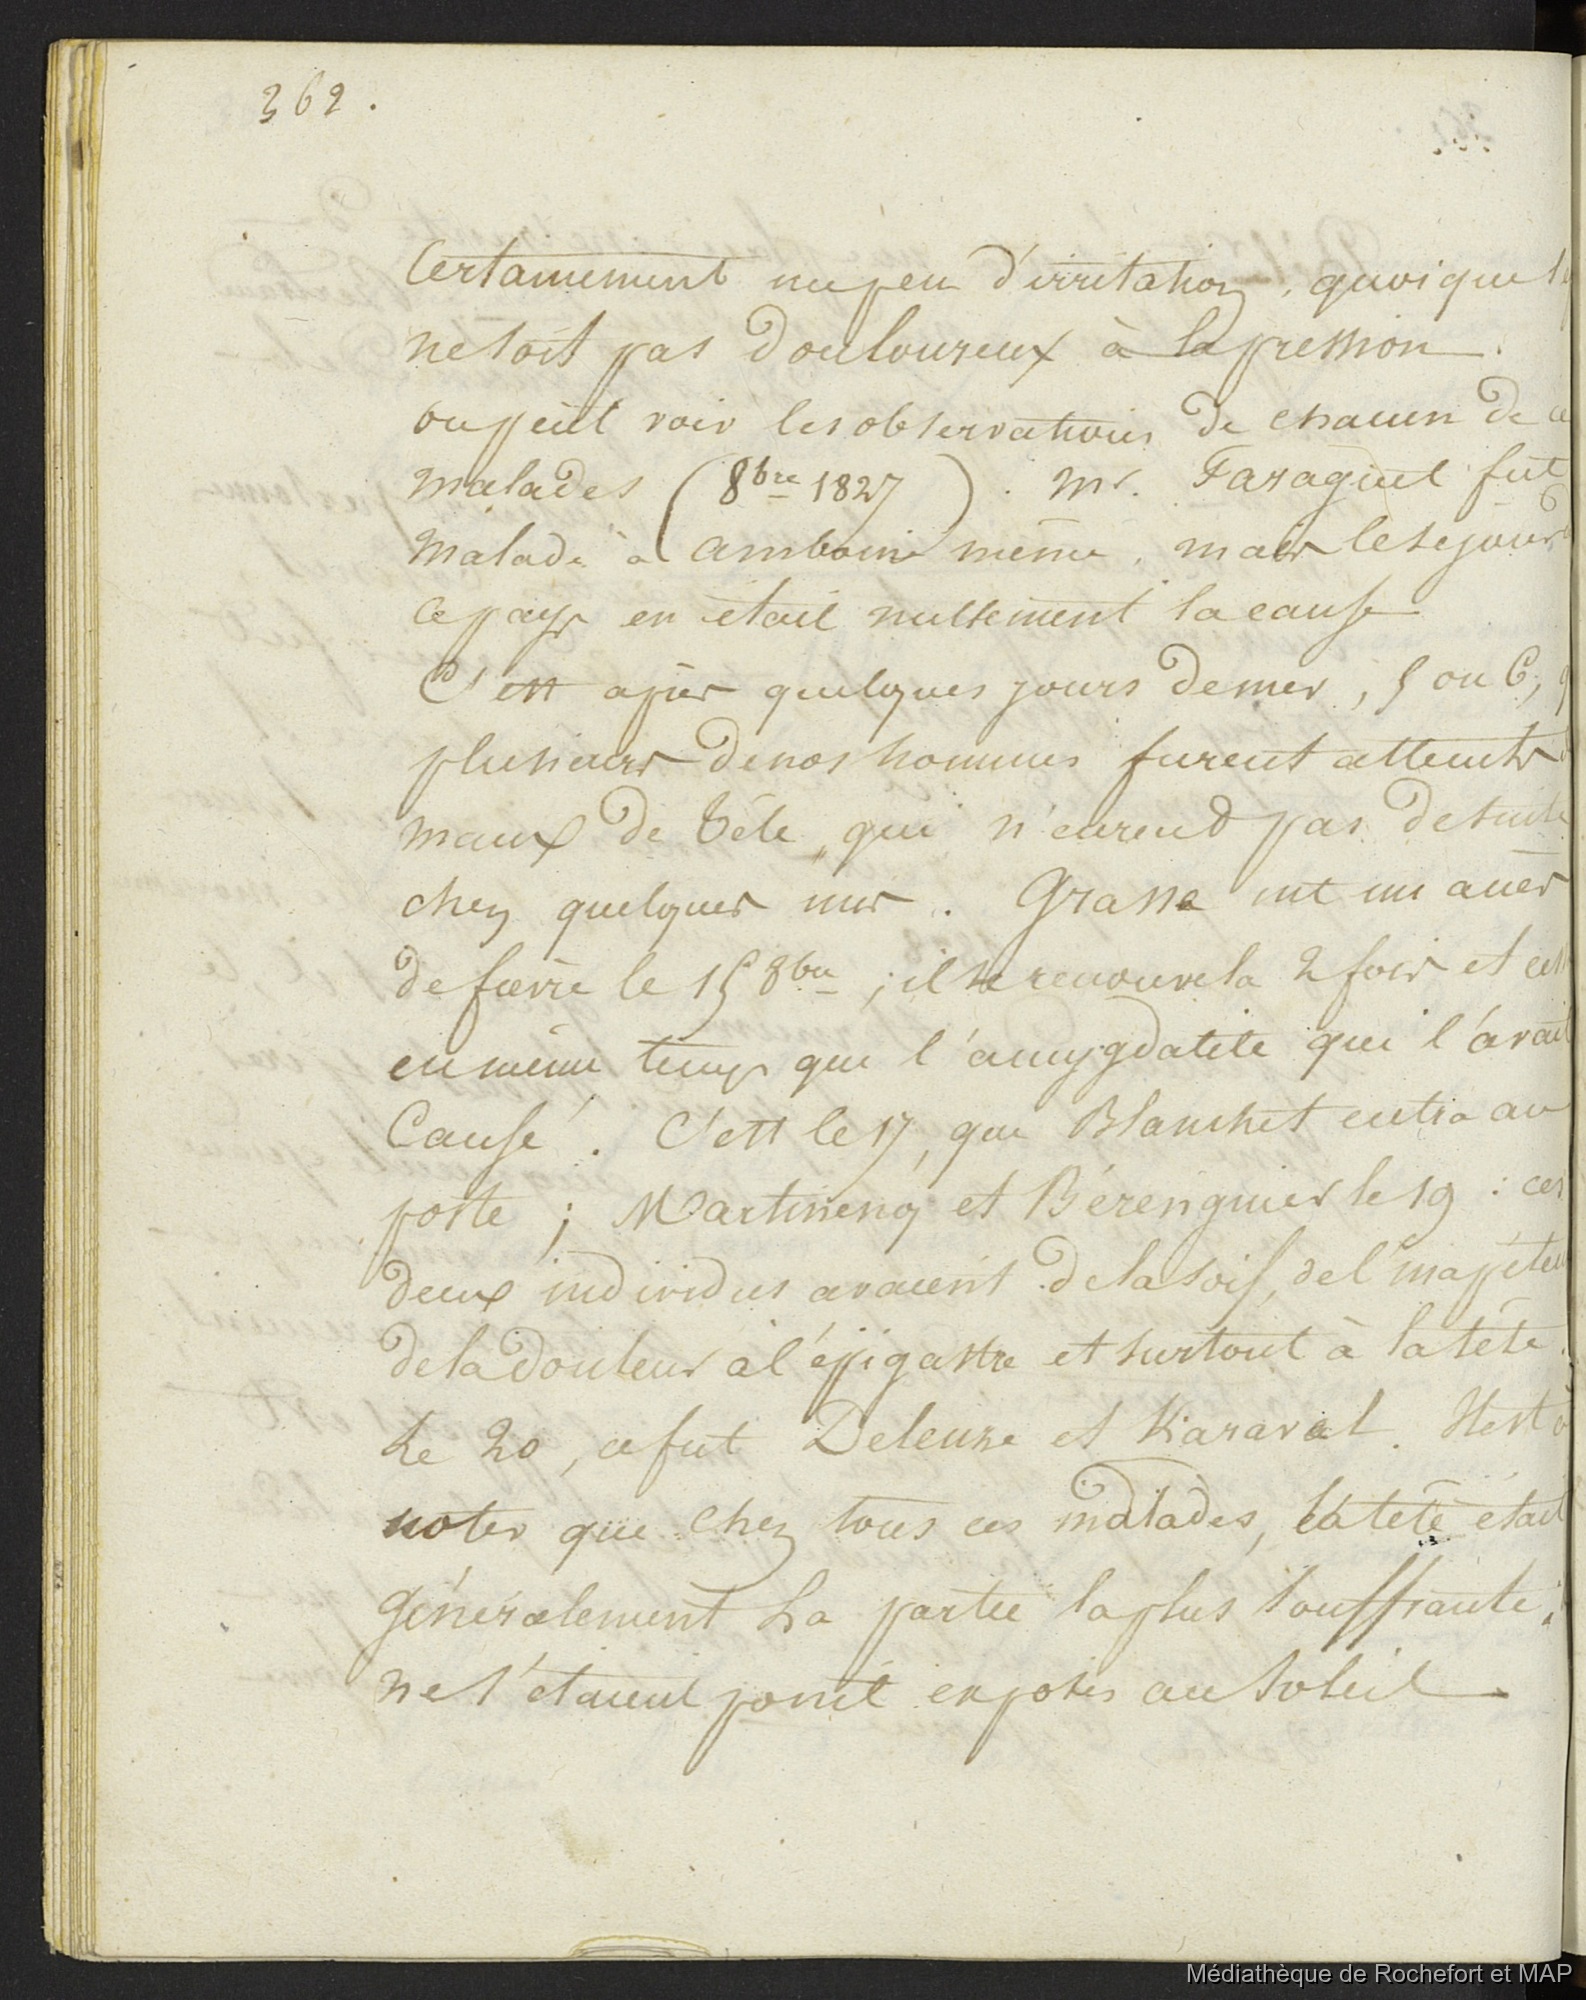 362.
Certainement un peu d'irritation, quoique
ne soit pas douloureux à la pression.
on peut voir les observations de chacun de ce
malades (8bre 1827). Mr. Faraguet fut
malade à amboine même, mais le séjour
ce pays en était nullement la cause
C'est après quelques jours de mer, 5 ou 6,
plusieurs de nos hommes furent atteints
maux de tête, qui n'eurent pas de suite
chez quelques uns. Grasse eut un accès
de fièvre le 15 8bre; il se renouvela 2 fois et cess
en même temps que l'amygdalite qui l'avait
Causé. C'est le 17, que Blanchet entra au
poste; Martineng et Bérenguier le 19: ces
deux individus avaient de la soif, de l'inappéten
de la douleur à l'épigastre et surtout à la tête.
Le 20, ce fut Deleuze et Kararel. Il est à
noter que chez tous ces malades, la tête était
généralement la partie la plus souffrante;
ne s'étaient point exposés au soleil
Médiathèque de Rochefort et MAP